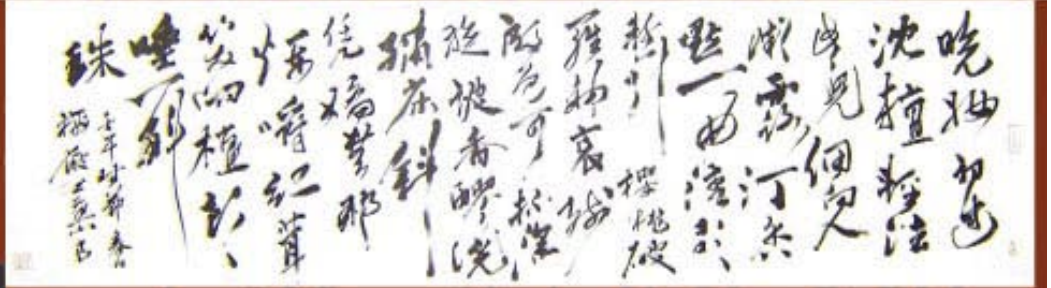 晚妝初過
沈檀輕注
些兒個向人
微露丁香
顆一曲清歌
暫引櫻桃破
羅袖裛殘
殷色可杯深
旋被香醪涴
繡床斜
凭嬌無那
爛嚼紅茸
笑向檀郎
唾一斛
珠